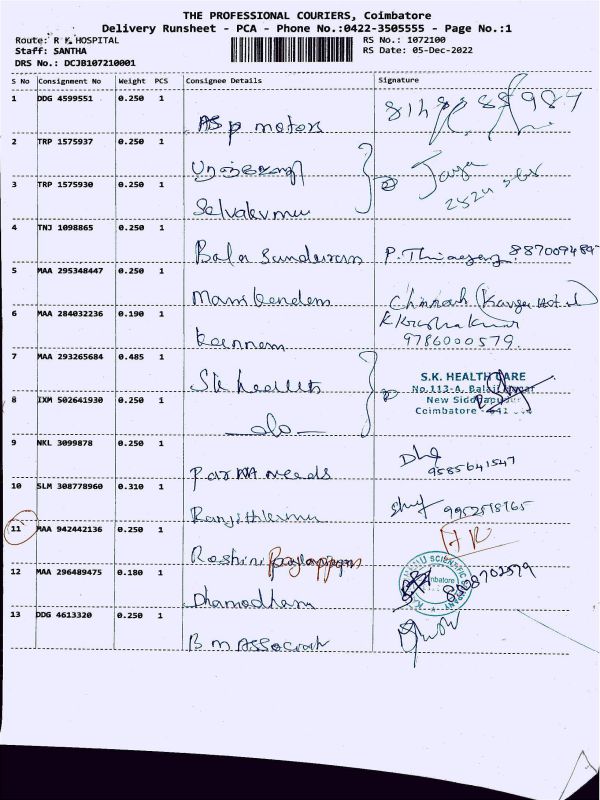 THE PROFESSIONAL COURIERS, Coimbatore
Delivery Runsheet - PCA - Phone No.:0422-3505555 - Page No.:1
Route: R K HOSPITAL RS No.: I072100
Staff: SANTHA RS Date: 05-Dec-2022
DRS No.: DCJB107210001
S No Consignment No Weight PCS Consignee Details Signature
1 DDG 4599551 0.250 1
ASP motors
2 TRP 1575937 0.250 1
3 TRP 1575930 0.250 1
Selvakumar
4 TNJ 1098865 0.250 1
Bala Sundaram
5 MAA 295348447 0.250 1
Manikandan
6 MAA 284032236 0.190 1
Kannan
9786000579.
7 MAA 293265684 0.485 1
SK health
S.K. HEALTH CARE
No.113-A, Balaji Nagar
New Siddhapudur
Coimbatore - 641
8 IXM 502641930 0.250 1
-do-
9 NKL 3099878 0.250 1
needs
9585641547
10 SLM 308778960 0.310 1
Ranjithkumar
11 MAA 942442136 0.250 1
Roshini
12 MAA 296489475 0.180 1
Dhamodharan
SCIENTIFIC COMPANY
13 DDG 4613320 0.250 1
B M Associat